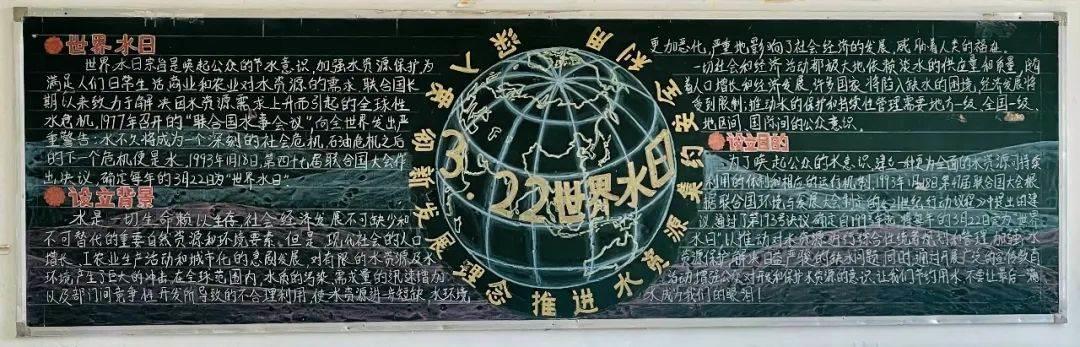 世界水日
世界水日宗旨是唤起公众的节水意识,加强水资源保护为
满足人们日常生活、商业和农业对水资源的需求,联合国长
期以来致力于解决因水资源需求上升而引起的全球性
水危机,1977年召开的“联合国水事会议”,向全世界发出严
重警告:水不久将成为一个深刻的社会危机,石油危机之后
的下一个危机便是水。1993年1月18日,第四十七届联合国大会作
出决议,确定每年的3月22日为“世界水日”。
设立背景
水是一切生命赖以生存,社会经济发展不可缺少和
不可替代的重要自然资源和环境要素。但是,现代社会的人口
增长、工农业生产活动和城市化的急剧发展,对有限的水资源及水
环境产生了巨大的冲击。在全球范围内,水质的污染、需水量的迅速增加
以及部门间竞争性开发所导致的不合理利用,使水资源进一步短缺,水环境
深入贯彻新发展理念 推进水资源集约安全利用
3.22世界水日
更加恶化,严重地影响了社会经济的发展,威胁着人类的福祉。
一切社会和经济活动都极大地依赖淡水的供应量和质量,随
着人口增长和经济发展,许多国家将陷入缺水的困境,经济发展将
受到限制,推动水的保护和持续性管理需要地方一级、全国一级、
地区间、国际间的公众意识。
设立目的
为了唤起公众的水意识,建立一种更为全面的水资源可持续
利用的体制和相应的运行机制,1993年1月18日,第47届联合国大会根
据联合国环境与发展大会制定的《21世纪行动议程》中提出的建
议,通过了第193号决议,确定自1993年起,每年的3月22日为“世界
水日”,以推动对水资源进行综合性统筹规划和管理,加强水
资源保护,解决日益严峻的缺水问题。同时,通过开展广泛的宣传教育
活动,增强公众对开发和保护水资源的意识。让我们节约用水,不要让最后一滴
水成为我们的眼泪!